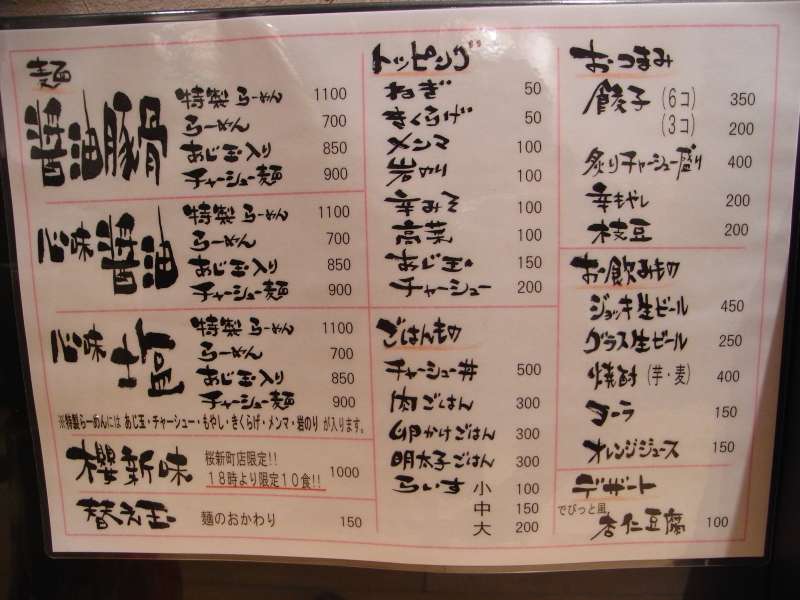 麺
醤油豚骨
特製らーめん 1100
らーめん 700
あじ玉入り 850
チャーシュー麺 900
心味 醤油
特製らーめん 1100
らーめん 700
あじ玉入り 850
チャーシュー麺 900
心味 塩
特製らーめん 1100
らーめん 700
あじ玉入り 850
チャーシュー麺 900
※特製らーめんには あじ玉・チャーシュー・もやし・きくらげ・メンマ・岩のり が入ります。
櫻新味
桜新町店限定!!
18時より限定10食!! 1000
替え玉 麺のおかわり 150
トッピング
ねぎ 50
きくらげ 50
メンマ 100
岩のり 100
辛みそ 100
高菜 100
あじ玉 150
チャーシュー 200
ごはんもの
チャーシュー丼 500
肉ごはん 300
卵かけごはん 300
明太子ごはん 300
らいす 小 100
中 150
大 200
おつまみ
餃子 (6コ) 350
(3コ) 200
炙りチャーシュー盛り 400
辛もやし 200
枝豆 200
お飲みもの
ジョッキ生ビール 450
グラス生ビール 250
焼酎 (芋・麦) 400
コーラ 150
オレンジジュース 150
デザート
でびっと風
杏仁豆腐 100